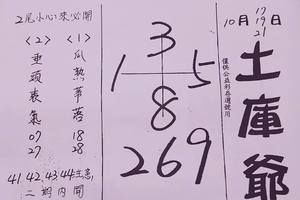 10月17 19 21日
土庫爺
僅供公益彩券選號用
3
1 5
8
269
2尾小心來必開
<1>
瓜熟蒂落
18
28
<2>
垂頭喪氣
07
27
41.42.43.44
二期內開